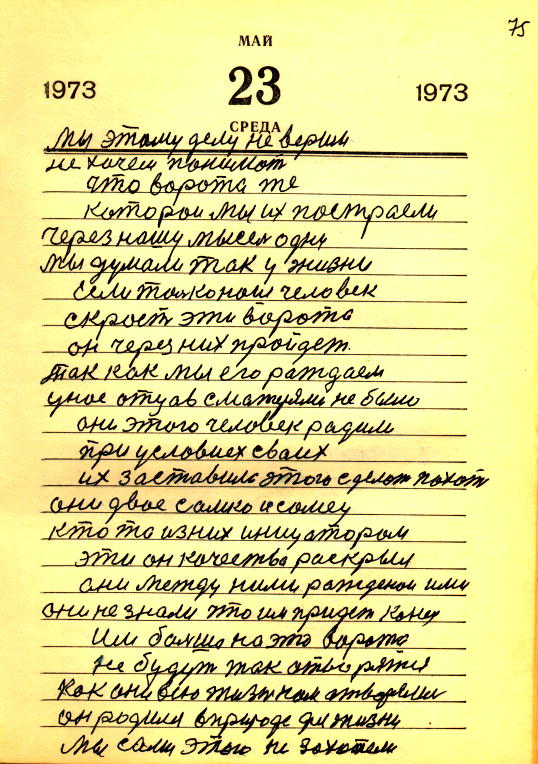 75
МАЙ
1973 23 1973
СРЕДА
мы этому делу не верим
не хочем понимат
что ворота те
которои мы их построели
через нашу мысел одну
мы думали так у жизни
если толко наш человек
скрост эти ворота
он через них пройдет.
так как мы его раждаем
у нас отцав с матуями не было
они этого человек радили
при условиех сваих
их заставила этого сделат похот
они двое самка и самец
кто та из них иницатором
эти он качества раскрыл
они между ними ражденои ими
они не знали что им придет конец
Им болша на это ворота
не будут так отворятся
как они всю жизн нам атворяли
он родили в природе для жизни
мы сами этого не захотели